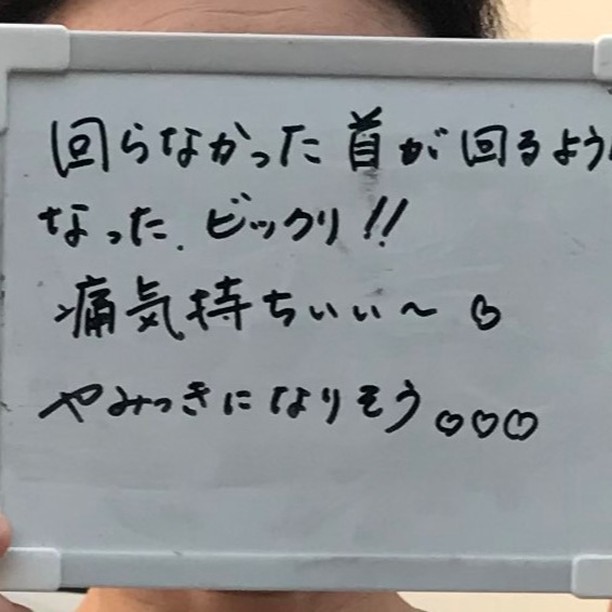 回らなかった首が回るよう
なった.ビックリ!!
痛気持ちいい〜♡
やみつきになりそう♡♡♡